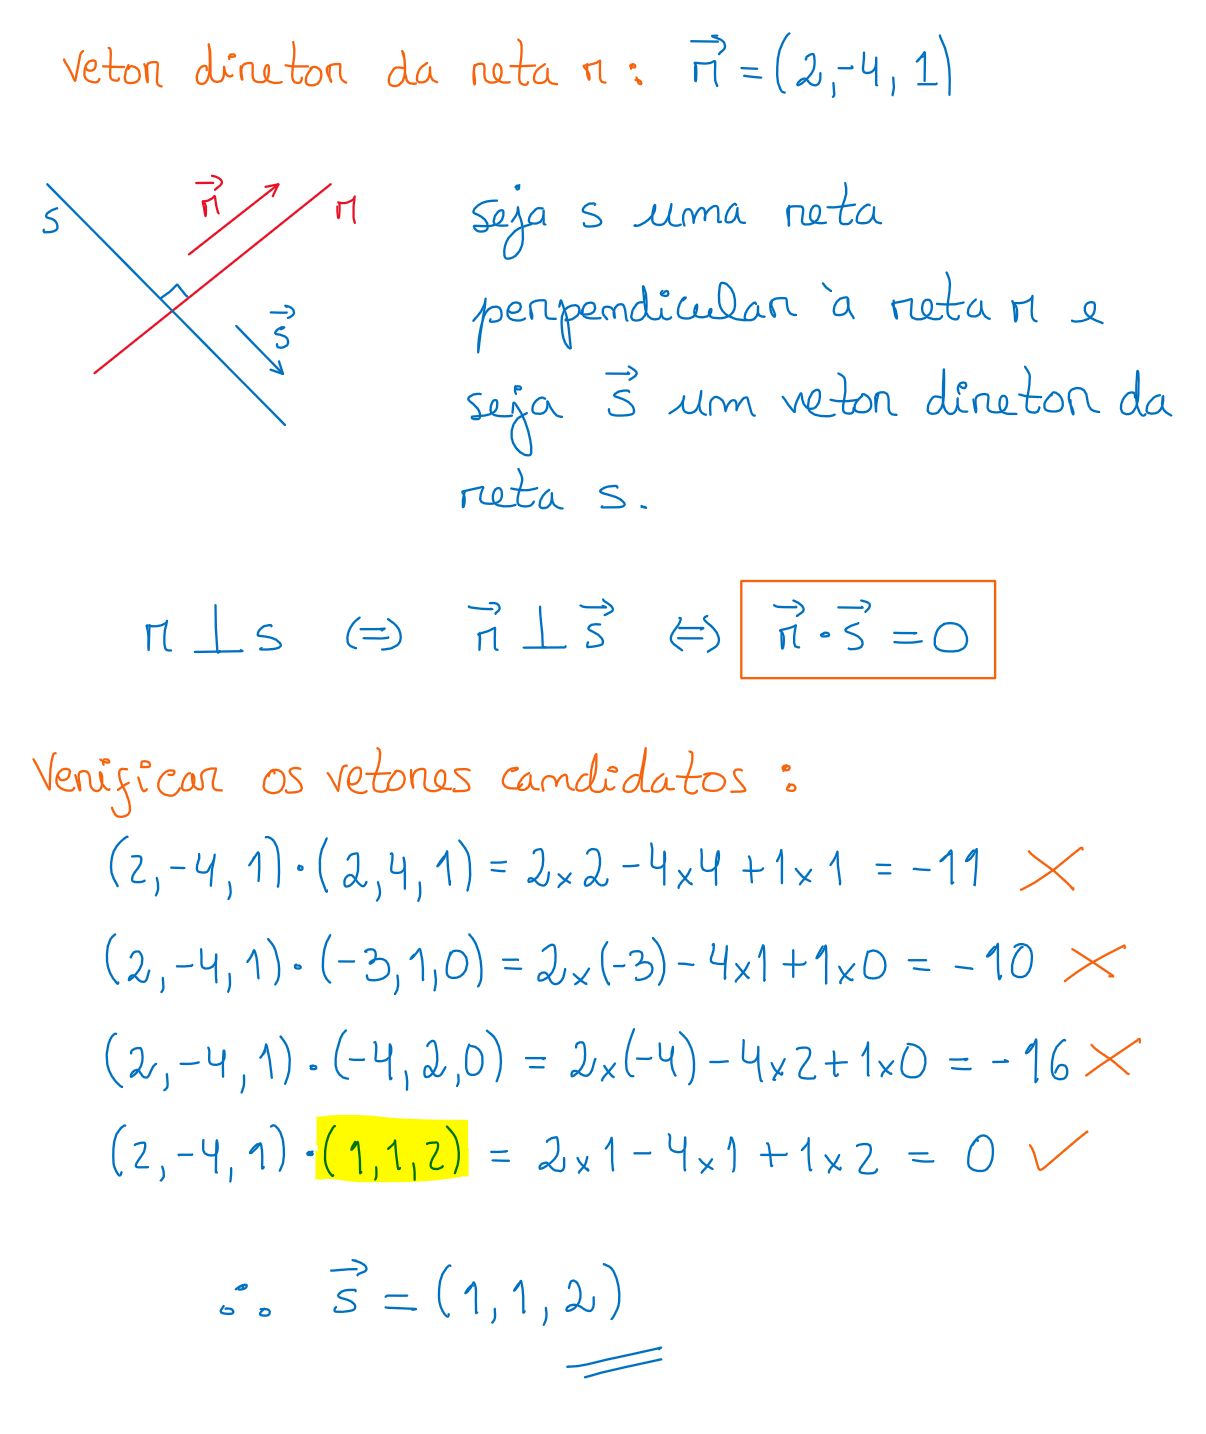 vetor diretor da reta r : r⃗ = (2,-4, 1)
s r⃗ r
s⃗
seja s uma reta
perpendicular à reta r e
seja s⃗ um vetor diretor da
reta s.
r ⊥ s ⇔ r⃗ ⊥ s⃗ ⇔ r⃗ · s⃗ = 0
Verificar os vetores candidatos :
(2,-4, 1) · (2,4, 1) = 2×2 - 4×4 + 1×1 = -11 ✗
(2,-4, 1) · (-3,1,0) = 2×(-3) - 4×1 + 1×0 = -10 ✗
(2,-4, 1) · (-4,2,0) = 2×(-4) - 4×2 + 1×0 = -16 ✗
(2,-4, 1) · (1,1,2) = 2×1 - 4×1 + 1×2 = 0 ✓
∴ s⃗ = (1, 1, 2)